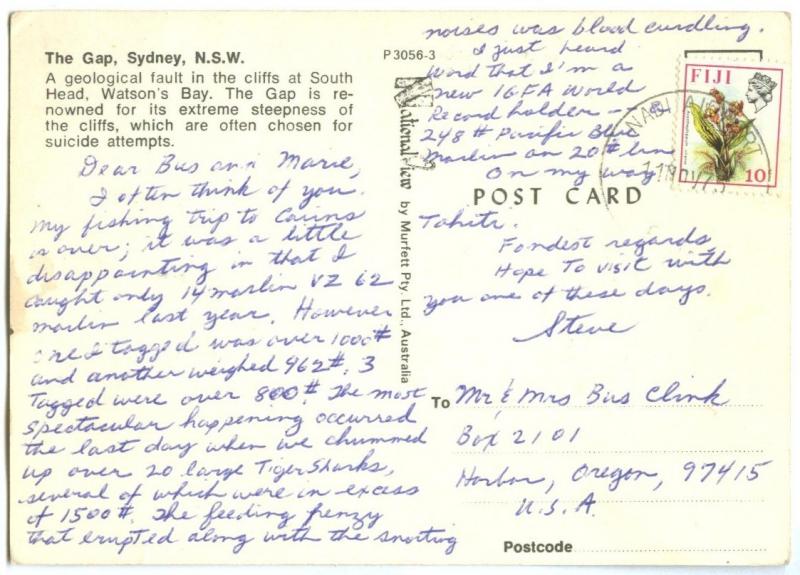 The Gap, Sydney, N.S.W.
A geological fault in the cliffs at South
Head, Watson's Bay. The Gap is re-
nowned for its extreme steepness of
the cliffs, which are often chosen for
suicide attempts.
P3056-3
Dear Bus and Marie,
I often think of you.
My fishing trip to Cairns
is over; it was a little
disappointing in that I
caught only 14 marlin VZ 62
marlin last year. However
one I tagged was over 1000#
and another weighed 962#. 3
Tagged were over 800#. The most
spectacular happening occurred
the last day when we chummed
up over 20 large Tiger Sharks,
several of which were in excess
of 1500#. The feeding frenzy
that erupted along with the snorting
noises was blood curdling.
I just heard
word that I'm a
new IGFA World
Record holder —
248# Pacific Blue
Marlin on 20# line
On my way
Tahiti.
Fondest regards,
Hope To visit with
you one of these days.
Steve
National View by Murfett Pty. Ltd., Australia
FIJI
10c
POST CARD
To Mr & Mrs Bus Clink
Box 2101
Harbor, Oregon, 97415
U.S.A.
Postcode